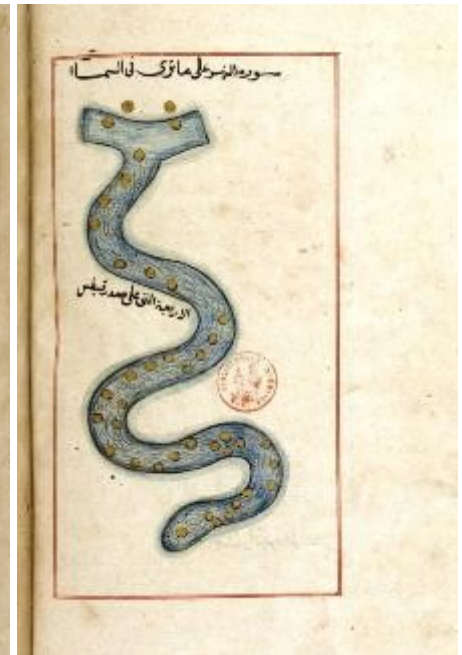 صورة النهر على ما ترى في السماء
الاربعة التي على صدر قيطس